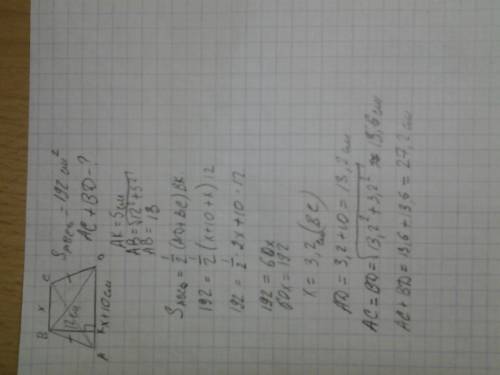 B x C
12 см
A K x+10см D
S ABCD = 192 см²
AC + BD - ?
AK = 5 см
AB = √12² + 5²
AB = 13
S ABCD = 1/2 (AD + BC) BK
192 = 1/2 (x + 10 + x) 12
192 = 1/2 2x + 10 · 12
192 = 60x
60x = 192
x = 3,2 см (BC)
AD = 3,2 + 10 = 13,2 см
AC = BD = √13,2² + 3,2² ≈ 13,6 см
AC + BD = 13,6 + 13,6 = 27,2 см